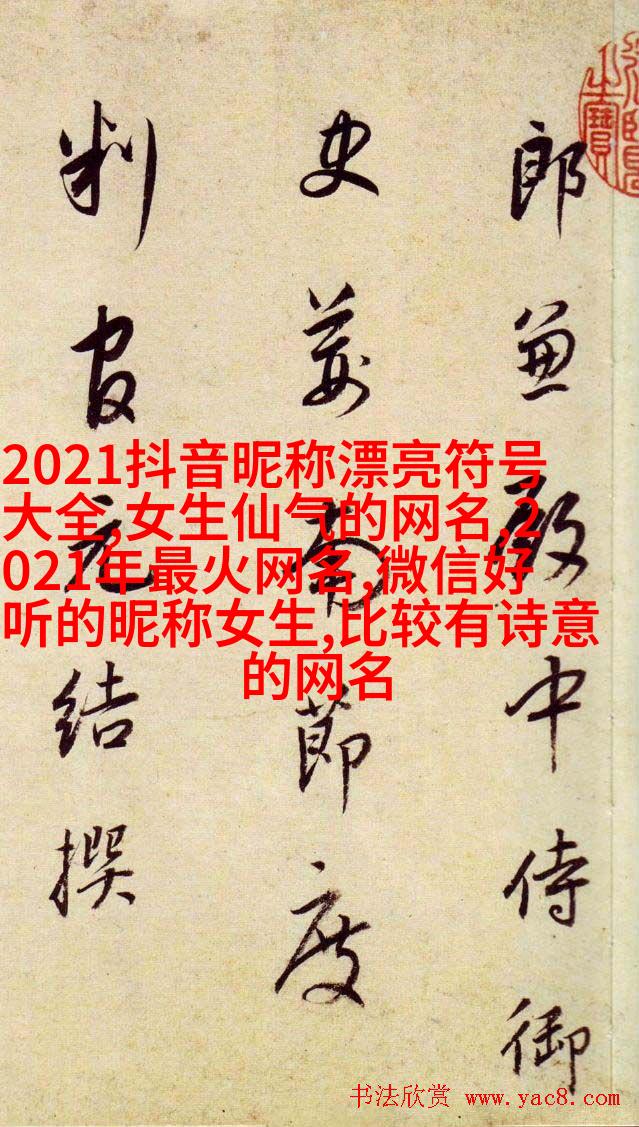 郎兼殿中侍御
史荆南節度
判官元結撰
2021抖音昵称漂亮符号
大全,女生仙气的网名,2
021年最火网名,微信好
听的昵称女生,比较有诗意
的网名
书法欣赏 www.yac8.com